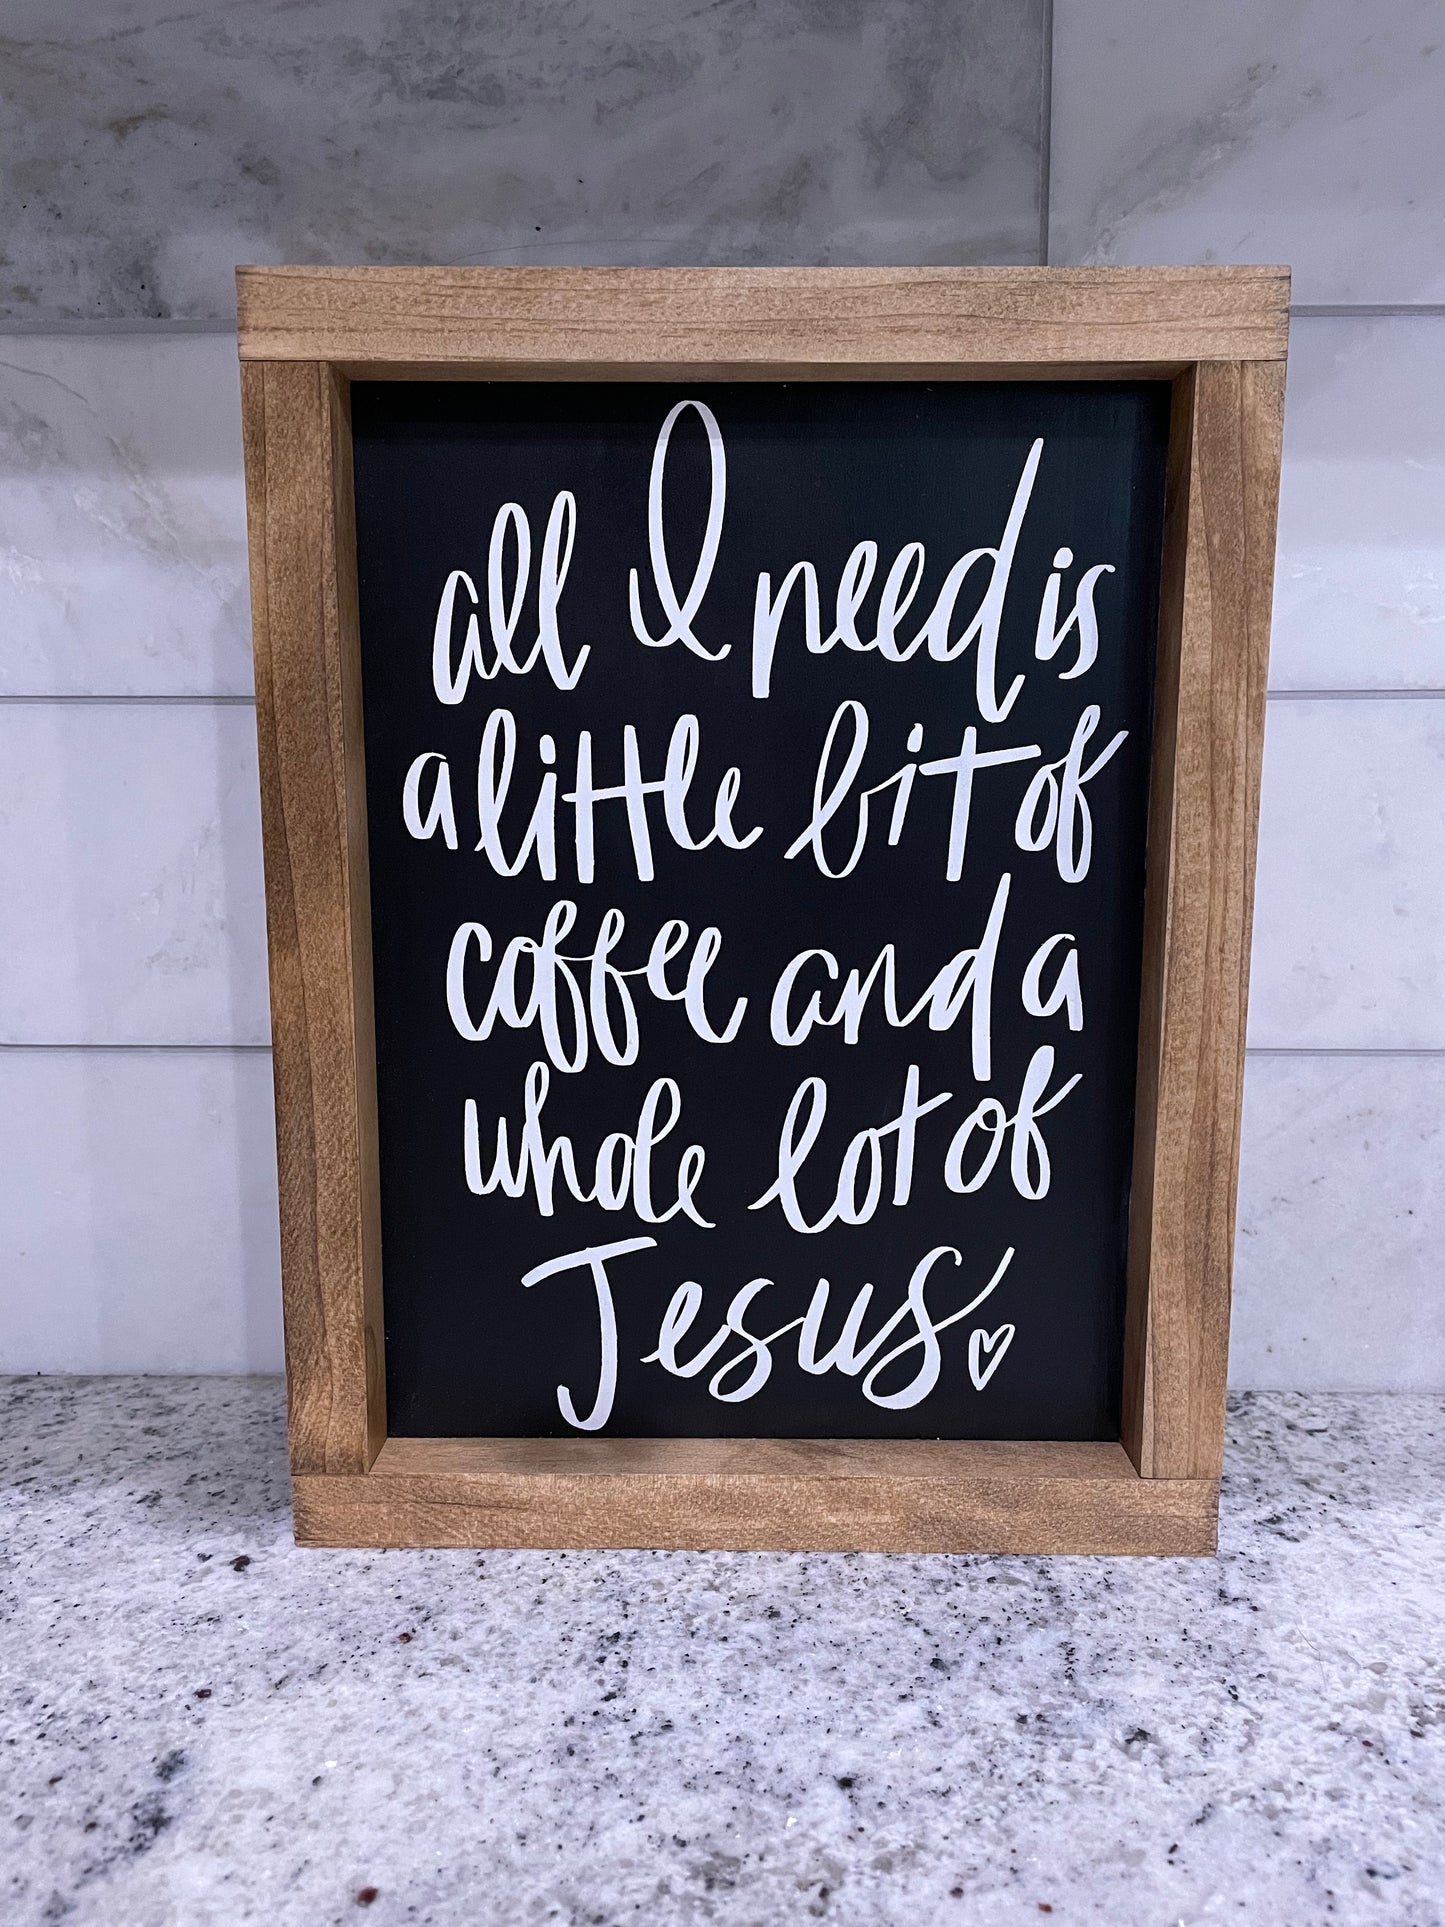 all I need is
a little bit of
coffee and a
whole lot of
Jesus